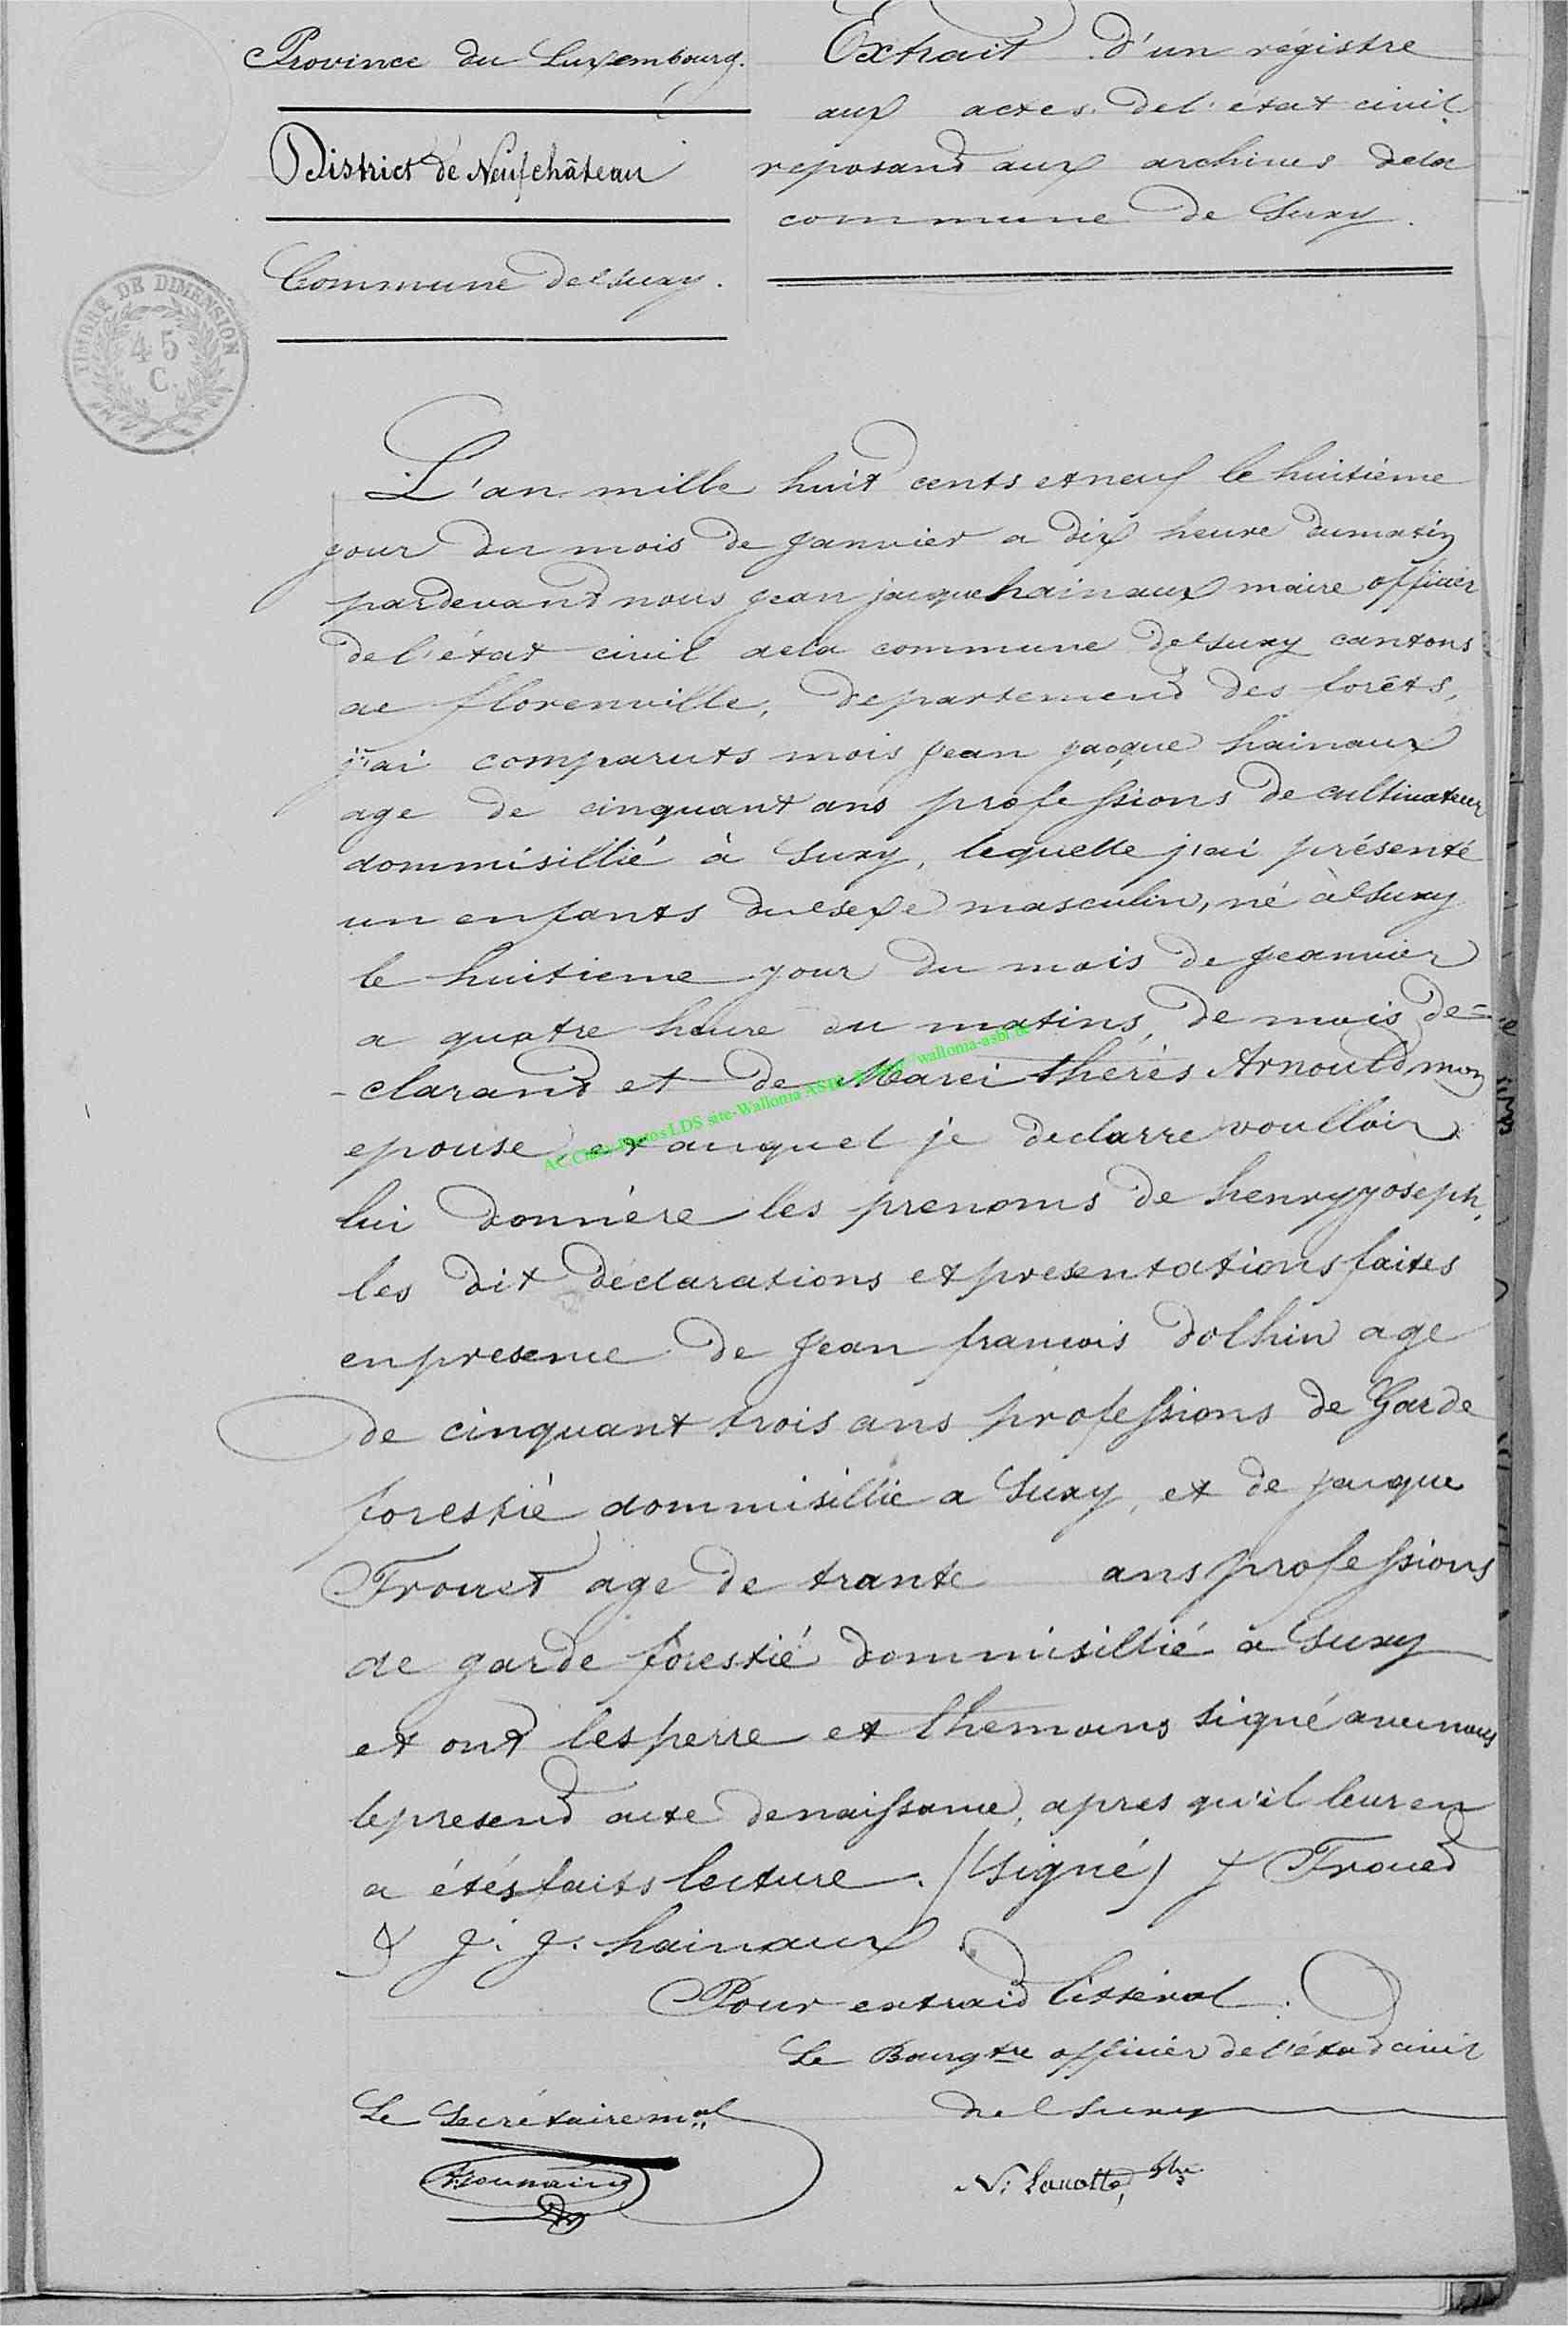 Province du Luxembourg.
District de Neufchâteau
Commune de Suxy.
TIMBRE DE DIMENSION
45
C.
Extrait d'un régistre
aux actes de l'état civil
reposand aux archives dela
commune de Suxy.
L'an mille huit cents et neuf le huitième
jour du mois de janvier a dix heure du matin
pardevand nous jean jacque hainaux maire officier
de l'état civil dela commune de Suxy cantons
de florenville, departemend des forêts,
j'ai comparuts mois jean jacque hainaux
age de cinquant ans professions de cultivateur
dommisillié à Suxy, lequelle j'ai présenté
un enfants du sexe masculin, né à Suxy
le huitieme jour du mois de jeanvier
a quatre heure du matins, de mois de=
-clarand et de Marei thérès Arnould mon
epouse, et auquel je declarre voulloir
lui donnére les prenoms de henry joseph,
les dit déclarations et presentations faites
en presence de jean francois dolhin age
de cinquant trois ans professions de Garde
forestié dommisillié a Suxy, et de jacque
Frouet age de trante ans professions
de garde forestié dommisillié a Suxy
et ont les perre et themoins signé avec nous
le presend acte de naissance, apres qu'il leur en
a étés faits lecture. (Signé) J Froued
& J. J. hainaux.
Pour extraid littéral.
Le Bourgtre officier de l'étad civil
de Suxy
Le Secrétaire mal
N. Lanotte,
AC Photos LDS site-Wallonia ASBL wallonia-asbl.be